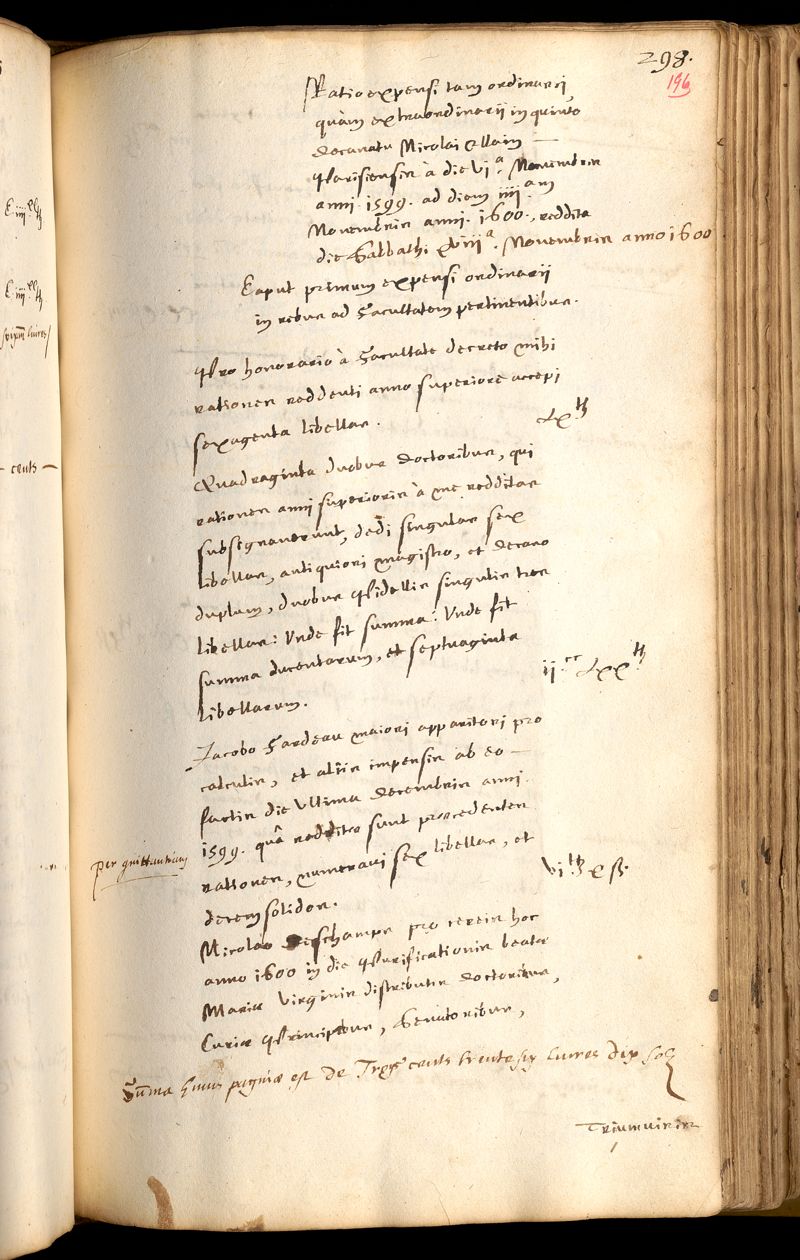 298.
196
Ratio expensi tam ordinarii,
quàm extraordinarii in quinto
decanatu Nicolai Ellain
Parisiensis à die vi.ª Novembris
anni 1599. ad diem iiii.am
Novembris anni 1600., reddita
die Sabbathi xviii.ª Novembris anno 1600
Caput primum expensi ordinarii
in rebus ad Facultatem pertinentibus.
Pro honorario à Facultate decreto mihi
rationes reddenti anno superiore accepi
sexaginta libellas.
Lx tt
Quadraginta duobus doctoribus, qui
rationes anni superioris à me redditas
subsignaverunt, dedi singulas sex
libellas, antiquiori magistro, et decano
duplum, duobus Bidellis singulis tres
libellas: Unde fit summa: Unde fit
summa ducentarum, et septuaginta
libellarum.
ii.cc Lxx tt
Jacobo Gardeau maiori apparitori pro
calculis, et aliis impensis ab eo
factis die ultima Decembris anni
1599. quâ redditæ sunt præcedentes
rationes, numeravi sex libellas, et
decem solidos.
per quittantiam
vi tt x ß.
Nicolao Deschamps pro cereis hoc
anno 1600 in die Purificationis beatæ
Mariæ Virginis distributis doctoribus,
Curiæ Principibus, Senatoribus,
Summa huius paginæ est de Troys cents trente six livres dix solz
Triumviris